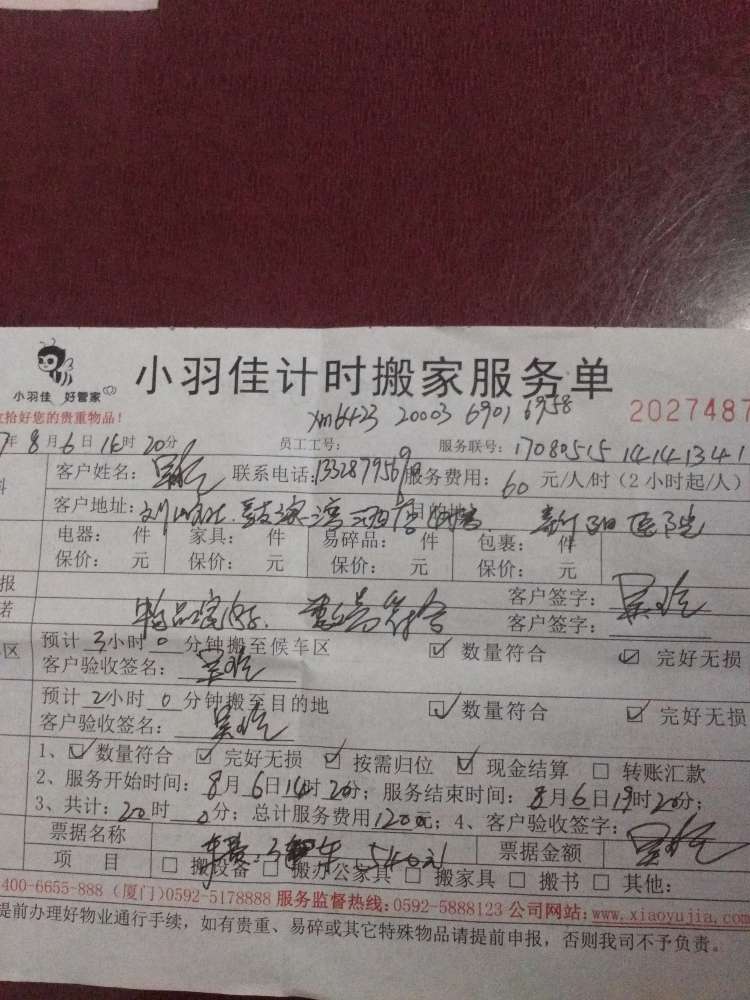 小羽佳 好管家
小羽佳计时搬家服务单
收拾好您的贵重物品！
xm6423 20003 6901 6958
2027487
7年8月6日14时20分 员工工号： 服务联号：17080515 14141341
客户姓名： 联系电话： 服务费用：60元/人/时（2小时起/人）
客户地址： 目的地：
电器： 件 家具： 件 易碎品： 件 包裹： 件
保价： 元 保价： 元 保价： 元 保价： 元
报 物品完好. 数量符合 客户签字：
诺 客户签字：
区 预计3小时0分钟搬至候车区 ☑ 数量符合 ☑ 完好无损
客户验收签名：
预计2小时0分钟搬至目的地 ☑ 数量符合 ☑ 完好无损
客户验收签名：
1、☑ 数量符合 ☑ 完好无损 ☑ 按需归位 ☑ 现金结算 □ 转账汇款
2、服务开始时间：8月6日14时20分；服务结束时间：8月6日19时20分；
3、共计：20时0分；总计服务费用1200元；4、客户验收签字：
票据名称 540元 票据金额
项 目 □ 搬设备 □ 搬办公家具 □ 搬家具 □ 搬书 □ 其他：
400-6655-888（厦门）0592-5178888 服务监督热线：0592-5888123 公司网站：www.xiaoyujia.com
提前办理好物业通行手续，如有贵重、易碎或其它特殊物品请提前申报，否则我司不予负责。